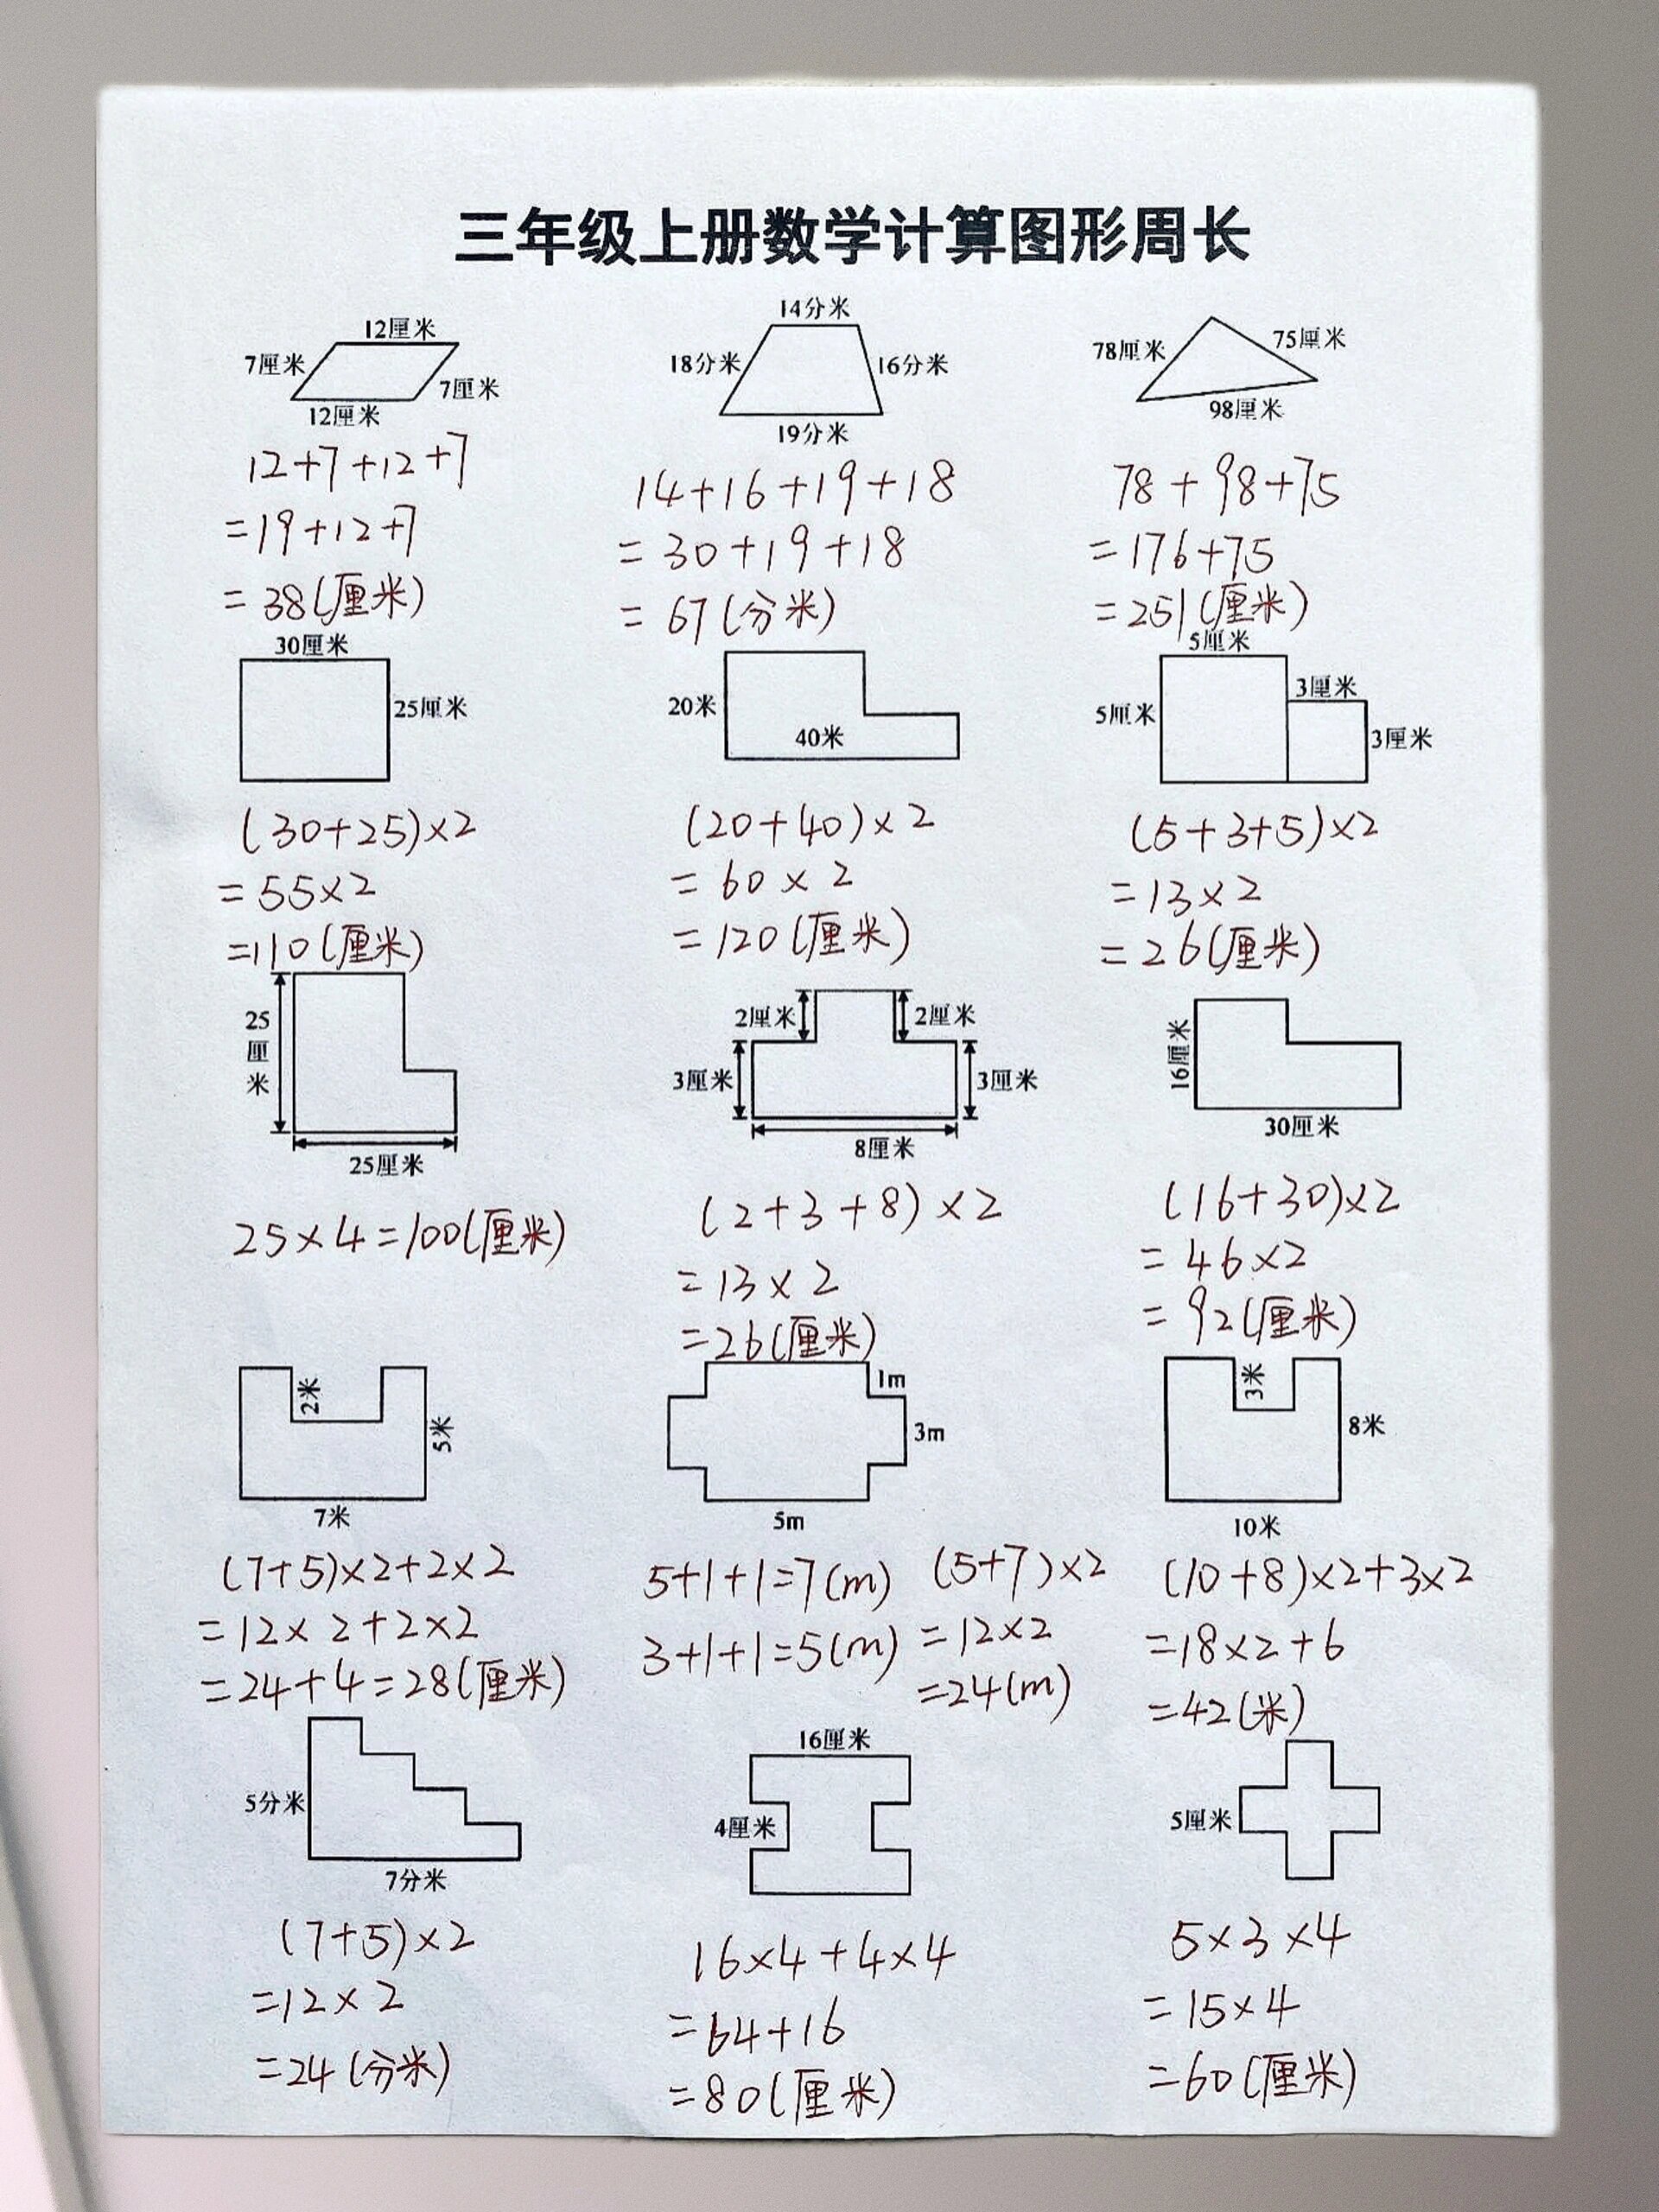 三年级上册数学计算图形周长
12厘米
7厘米
7厘米
12厘米
12+7+12+7
=19+12+7
=38(厘米)
14分米
18分米
16分米
19分米
14+16+19+18
=30+19+18
=67(分米)
78厘米
75厘米
98厘米
78+98+75
=176+75
=251(厘米)
30厘米
25厘米
(30+25)×2
=55×2
=110(厘米)
20米
40米
(20+40)×2
=60×2
=120(厘米)
5厘米
5厘米
3厘米
3厘米
(5+3+5)×2
=13×2
=26(厘米)
25厘米
25厘米
25×4=100(厘米)
2厘米
2厘米
3厘米
3厘米
8厘米
(2+3+8)×2
=13×2
=26(厘米)
16厘米
30厘米
(16+30)×2
=46×2
=92(厘米)
2米
5米
7米
(7+5)×2+2×2
=12×2+2×2
=24+4=28(厘米)
1m
3m
5m
5+1+1=7(m)
3+1+1=5(m)
(5+7)×2
=12×2
=24(m)
3米
8米
10米
(10+8)×2+3×2
=18×2+6
=42(米)
5分米
7分米
(7+5)×2
=12×2
=24(分米)
16厘米
4厘米
16×4+4×4
=64+16
=80(厘米)
5厘米
5×3×4
=15×4
=60(厘米)